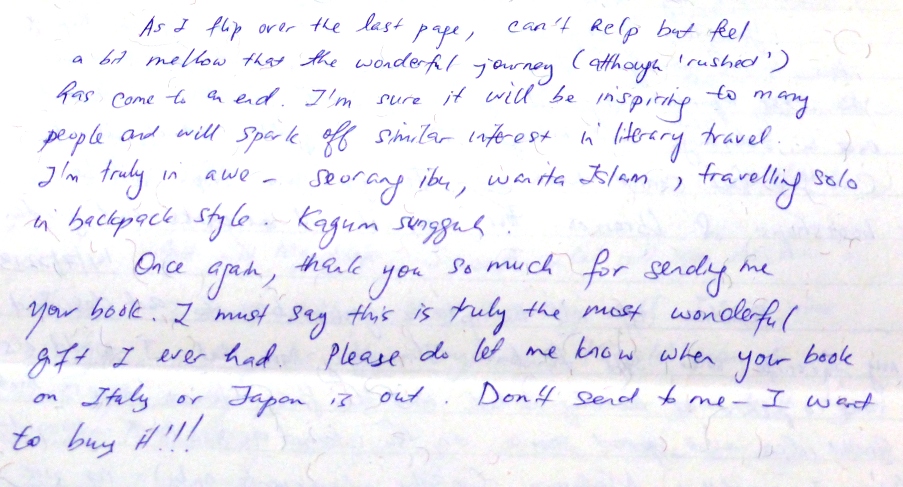 As I flip over the last page, can't help but feel
a bit mellow that the wonderful journey (although 'rushed')
has come to an end. I'm sure it will be inspiring to many
people and will spark off similar interest in literary travel.
I'm truly in awe - seorang ibu, wanita Islam, travelling solo
in backpack style. Kagum sungguh.
Once again, thank you so much for sending me
your book. I must say this is truly the most wonderful
gift I ever had. Please do let me know when your book
on Italy or Japan is out. Don't send to me - I want
to buy it!!!